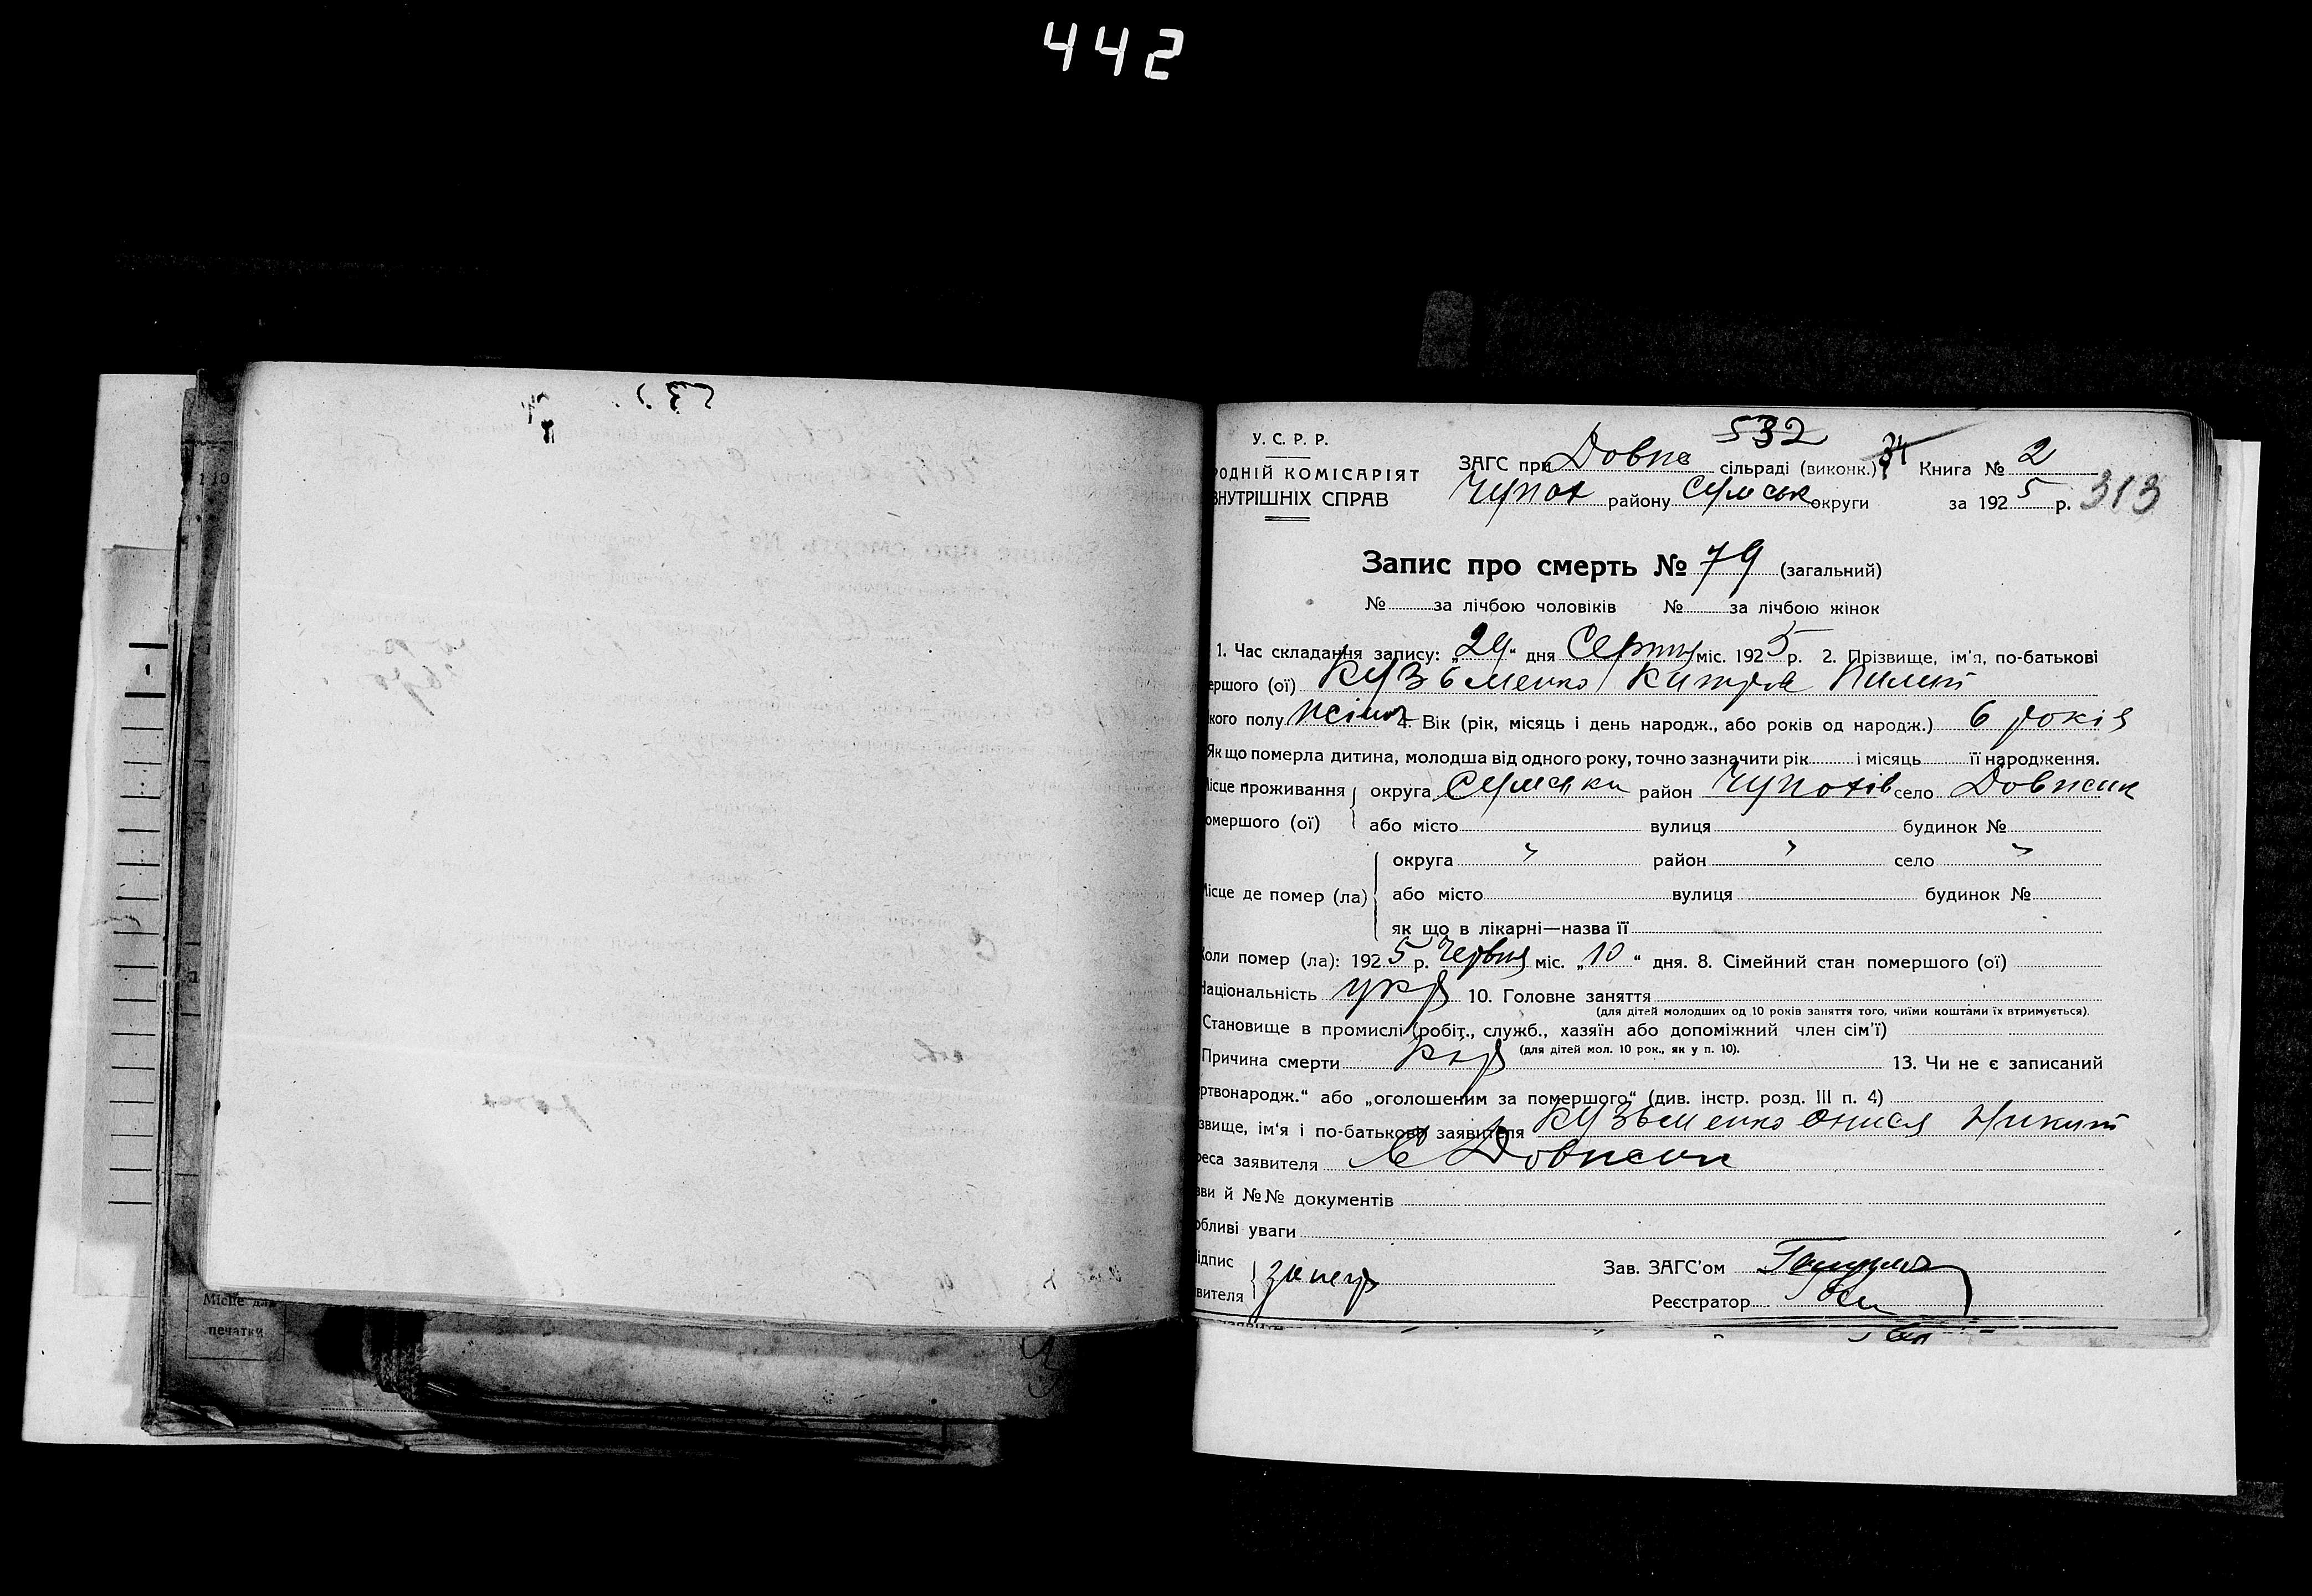 442
532
У. С. Р. Р.
РОДНІЙ КОМІСАРІЯТ
ВНУТРІШНІХ СПРАВ
ЗАГС при Довж сільраді (виконк.) Книга № 2
Чупах району Сумськ округи за 1925 р. 313
Запис про смерть № 79 (загальний)
№ за лічбою чоловіків № за лічбою жінок
1. Час складання запису: „29“ дня Серпня міс. 1925 р. 2. Прізвище, ім'я, по-батькові
ершого (ої) Кузьменко Пилип
кого полу жіноч 4. Вік (рік, місяць і день народж., або років од народж.) 6 років
Як що померла дитина, молодша від одного року, точно зазначити рік і місяць її народження.
Місце проживання округа Сумська район Чупахів село Довжик
омершого (ої) або місто вулиця будинок №
округа " район " село "
Місце де помер (ла) або місто вулиця будинок №
як що в лікарні—назва її
Коли помер (ла): 1925 р. Червня міс. „10“ дня. 8. Сімейний стан помершого (ої)
Національність укр 10. Головне заняття
(для дітей молодших од 10 років заняття того, чиїми коштами їх втримується).
Становище в промислі (робіт., служб., хазяїн або допоміжний член сім'ї)
(для дітей мол. 10 рок., як у п. 10).
Причина смерти кір 13. Чи не є записаний
ртвонародж.“ або „оголошеним за помершого“ (див. інстр. розд. III п. 4)
звище, ім'я і по-батькові заявителя Кузьменко Онися Никит
реса заявителя с Довжик
зви й №№ документів
обливі уваги
ідпис Зав. ЗАГС'ом
вителя
Реєстратор
Місце для
печатки